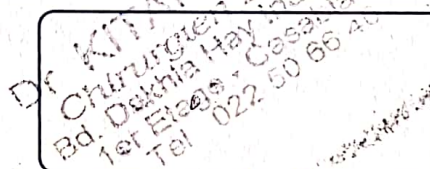 Dr KITA
Chirurgien
Bd. Dakhla Hay
1er Etage - Casabla
Tel 022 50 66 40